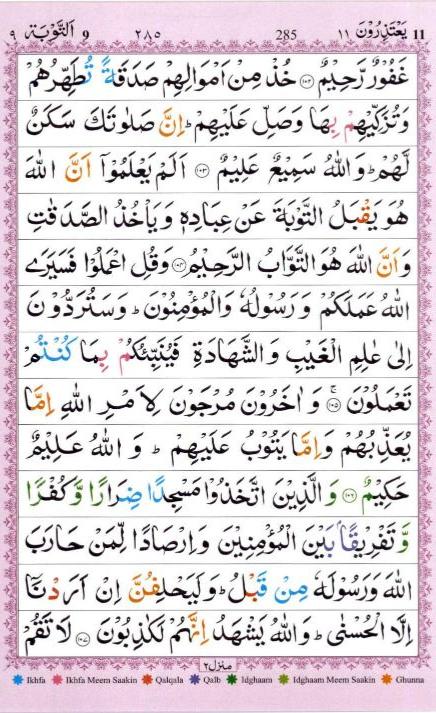 ٩ اَلتَّوْبَة 9 ٢٨٥ 285 يَعْتَذِرُوْنَ ١١ 11
غَفُوْرٌ رَّحِيْمٌ ﴿۱۰۲﴾ خُذْ مِنْ اَمْوَالِهِمْ صَدَقَةً تُطَهِّرُهُمْ
وَتُزَكِّيْهِمْ بِهَا وَصَلِّ عَلَيْهِمْ ؕ اِنَّ صَلٰوتَكَ سَكَنٌ
لَّهُمْ ؕ وَاللّٰهُ سَمِيْعٌ عَلِيْمٌ ﴿۱۰۳﴾ اَلَمْ يَعْلَمُوْۤا اَنَّ اللّٰهَ
هُوَ يَقْبَلُ التَّوْبَةَ عَنْ عِبَادِهٖ وَيَاْخُذُ الصَّدَقٰتِ
وَاَنَّ اللّٰهَ هُوَ التَّوَّابُ الرَّحِيْمُ ﴿۱۰۴﴾ وَقُلِ اعْمَلُوْا فَسَيَرَى
اللّٰهُ عَمَلَكُمْ وَرَسُوْلُهٗ وَالْمُؤْمِنُوْنَ ؕ وَسَتُرَدُّوْنَ
اِلٰى عٰلِمِ الْغَيْبِ وَالشَّهَادَةِ فَيُنَبِّئُكُمْ بِمَا كُنْتُمْ
تَعْمَلُوْنَ ﴿۱۰۵﴾ وَاٰخَرُوْنَ مُرْجَوْنَ لِاَمْرِ اللّٰهِ اِمَّا
يُعَذِّبُهُمْ وَاِمَّا يَتُوْبُ عَلَيْهِمْ ؕ وَاللّٰهُ عَلِيْمٌ
حَكِيْمٌ ﴿۱۰۶﴾ وَالَّذِيْنَ اتَّخَذُوْا مَسْجِدًا ضِرَارًا وَّكُفْرًا
وَّتَفْرِيْقًۢا بَيْنَ الْمُؤْمِنِيْنَ وَاِرْصَادًا لِّمَنْ حَارَبَ
اللّٰهَ وَرَسُوْلَهٗ مِنْ قَبْلُ ؕ وَلَيَحْلِفُنَّ اِنْ اَرَدْنَاۤ
اِلَّا الْحُسْنٰى ؕ وَاللّٰهُ يَشْهَدُ اِنَّهُمْ لَكٰذِبُوْنَ ﴿۱۰۷﴾ لَا تَقُمْ
منزل ٢
Ikhfa Ikhfa Meem Saakin Qalqala Qalb Idghaam Idghaam Meem Saakin Ghunna